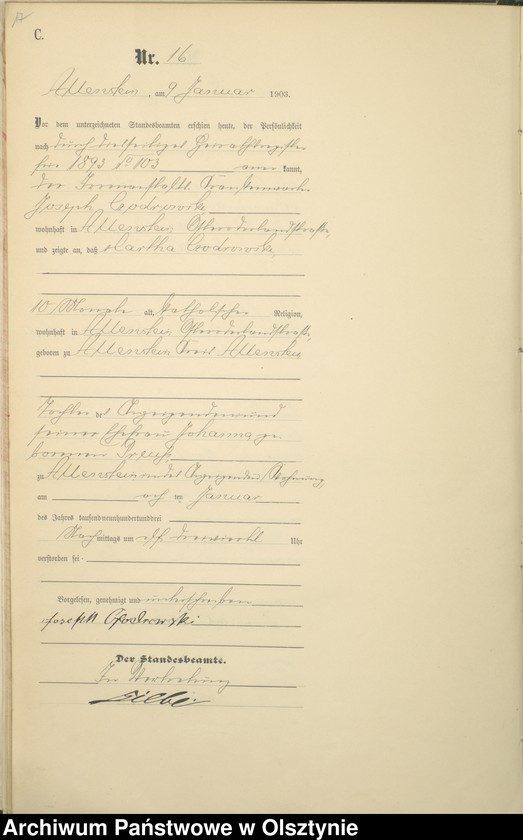 17
C.
Nr. 16
Allenstein, am 9 Januar 1903.
Vor dem unterzeichneten Standesbeamten erschien heute, der Persönlichkeit
nach durch diesseitiges Heirathsregister
für 1893 No 103 aner kannt,
der Krankenwärter
Joseph Czodrowski
wohnhaft in Allenstein, Osteroderlandstraße,
und zeigte an, daß Martha Czodrowski,
10 Monate alt, katholischer Religion,
wohnhaft in Allenstein, Osteroderlandstraße,
geboren zu Allenstein Kreis Allenstein
Tochter des Anzeigenden und
seiner Ehefrau Johanna ge-
borenen Preuß,
zu Allenstein in des Anzeigenden Wohnung
am acht ten Januar
des Jahres tausendneunhundertunddrei
Nach mittags um elf dreiviertel Uhr
verstorben sei.
Vorgelesen, genehmigt und unterschrieben
Joseph Czodrowski
Der Standesbeamte.
In Vertretung
Archiwum Państwowe w Olsztynie